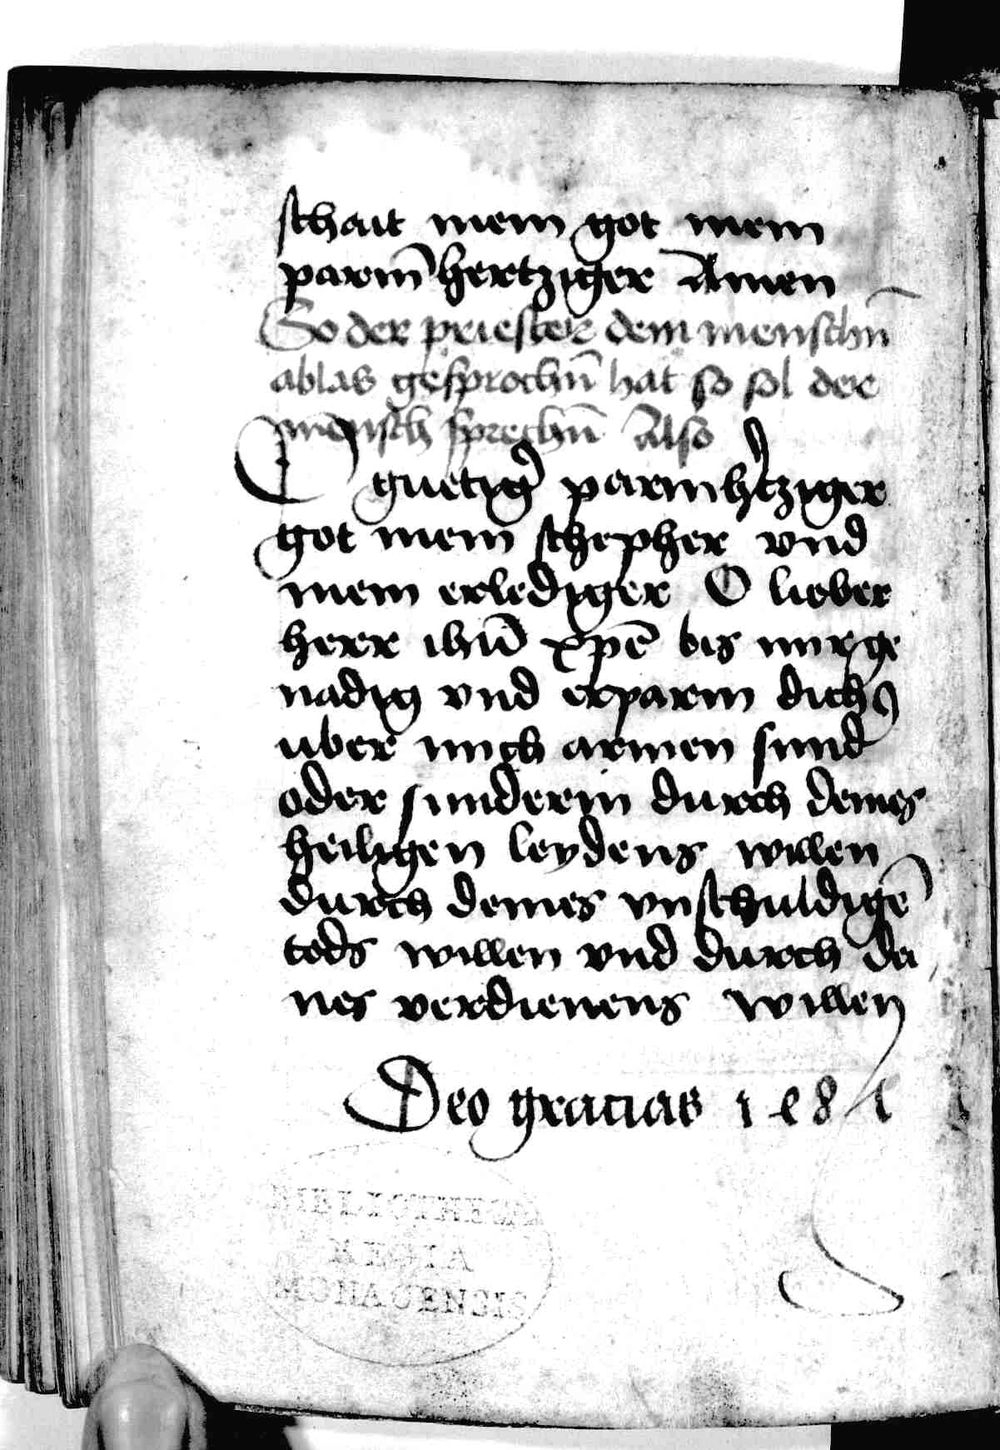 schait mein got mein
parm̄hertziger Amen
So der priester dem menschn̄
ablas gesprochn̄ hat so sol der
mensch sprechn̄ Also
O guetig̉ parmh̉tziger
got mein schepher vnd
mein erlediger O lieber
herr ih̄u xp̄e bis mir ge
nadig vnd erparm dich
uber mich armen sund̉
oder sunderin durch deines
heiligen leydens willen
durch deines vnschuldigē
tods willen vnd durch dei
nes verdienens willen
Deo gracias
BIBLIOTHECA
REGIA
MONACENSIS